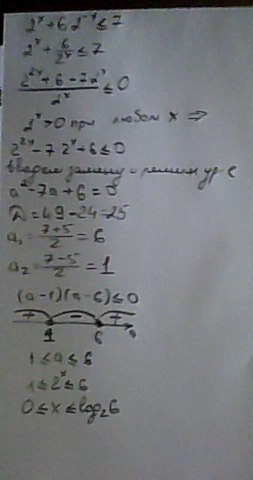 2ˣ+6·2⁻ˣ≤7
2ˣ+6/2ˣ≤7
(2²ˣ+6-7·2ˣ)/2ˣ≤0
2ˣ>0 при любом x ⇒
2²ˣ-7·2ˣ+6≤0
вводим замену и решаем ур-е
a²-7a+6=0
D=49-24=25
a₁=(7+5)/2=6
a₂=(7-5)/2=1
(a-1)(a-6)≤0
+ - +
1 6 a
1≤a≤6
1≤2ˣ≤6
0≤x≤log₂6